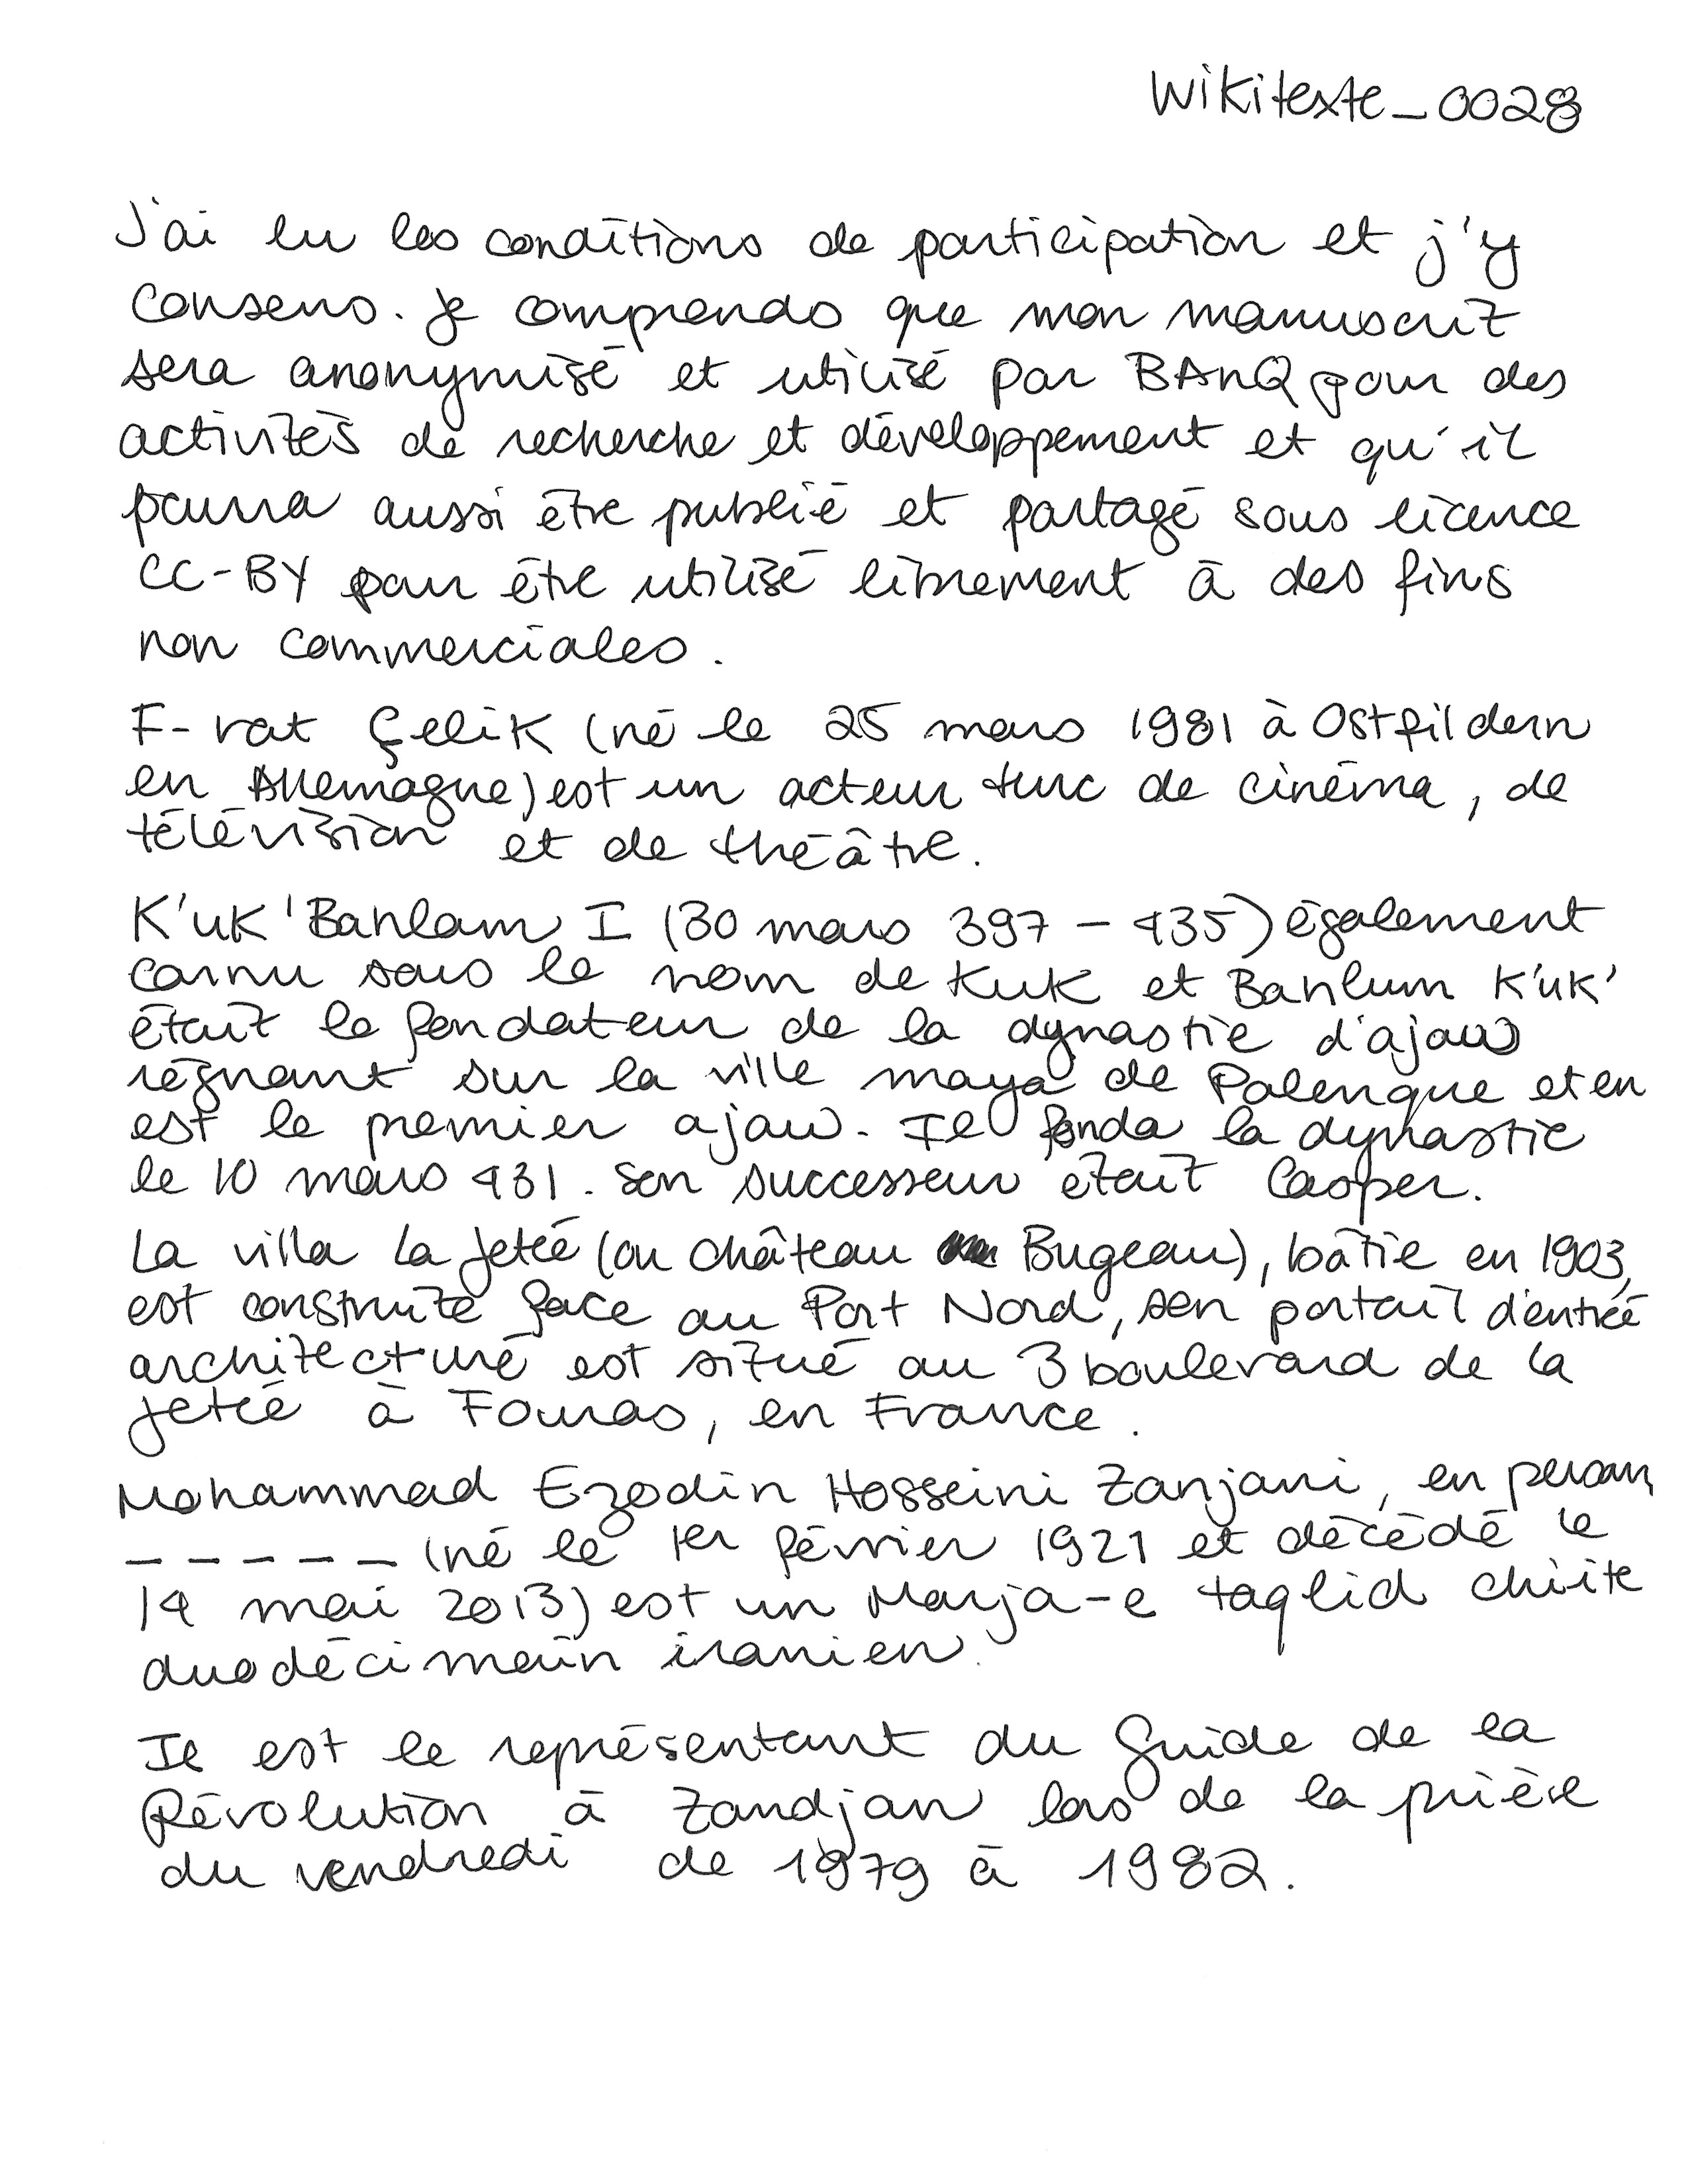 Wikitexte_0028
J'ai lu les conditions de participation et j'y
consens. Je comprends que mon manuscrit
sera anonymisé et utilisé par BAnQ pour des
activités de recherche et développement et qu'il
pourra aussi être publié et partagé sous licence
CC-BY pour être utilisé librement à des fins
non commerciales.
F-rat Çelik (né le 25 mars 1981 à Ostfildern
en Allemagne) est un acteur turc de cinéma, de
télévision et de théâtre.
K'uk' Bahlam I (30 mars 397 - 435) également
connu sous le nom de Kuk et Bahlum K'uk'
était le fondateur de la dynastie d'ajaw
régnant sur la ville maya de Palenque et en
est le premier ajaw. Il fonda la dynastie
le 10 mars 431. Son successeur était Casper.
La villa La Jetée (ou château Bugeau), bâtie en 1903,
est construite face au Port Nord, son portail d'entrée
architecturé est situé au 3 boulevard de la
Jetée à Fouras, en France.
Mohammad Ezodin Hosseini Zanjani, en persan,
_ _ _ _ _ (né le 1er février 1921 et décédé le
14 mai 2013) est un Marja-e taqlid chiite
duodécimain iranien.
Il est le représentant du Guide de la
Révolution à Zandjan lors de la prière
du vendredi de 1979 à 1982.